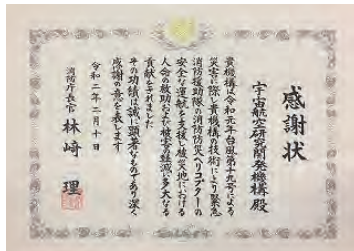 感謝状
宇宙航空研究開発機構殿
貴機構は令和元年台風第十九号による
災害に際し貴機構の技術により緊急
消防援助隊の消防防災ヘリコプターの
安全な運航を支援し被災地における
人命の救助および被害の軽減に多大なる
貢献をされました
その功績は誠に顕著なものであり深く
感謝の意を表します
令和二年二月十日
消防庁長官 林崎理